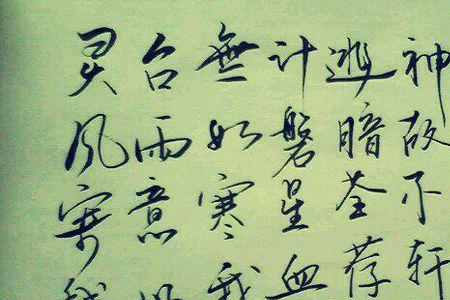 灵台無计逃神
风雨如磐暗故
寄意寒星荃不
我以我血荐轩